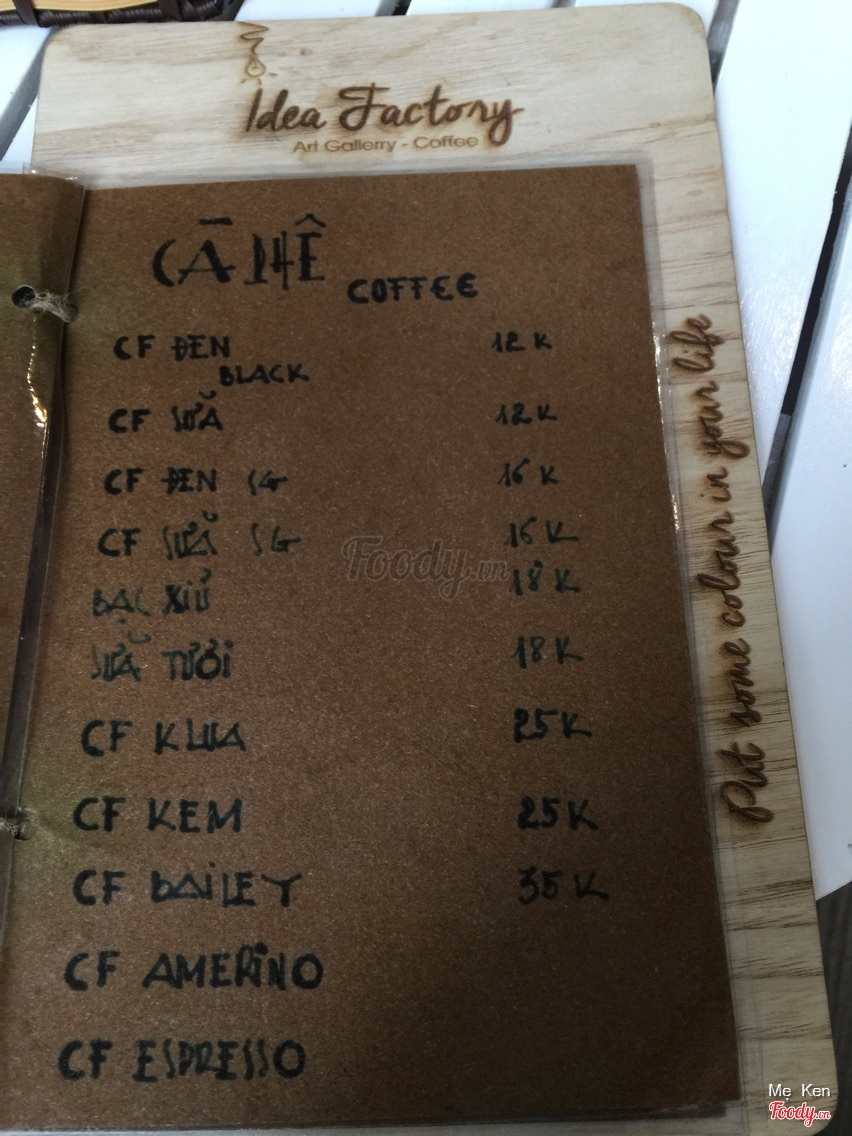 Idea Factory
Art Gallerry - Coffee
CÀ PHÊ
COFFEE
CF ĐEN 12K
BLACK
CF SỮA 12K
CF ĐEN SG 16K
CF SỮA SG 16K
BẠC XỈU 18K
SỮA TƯƠI 18K
CF KLUA 25K
CF KEM 25K
CF BAILEY 35K
CF AMERINO
CF ESPRESSO
Put some colour in your life
Foody.vn
Mẹ Ken
Foody.vn